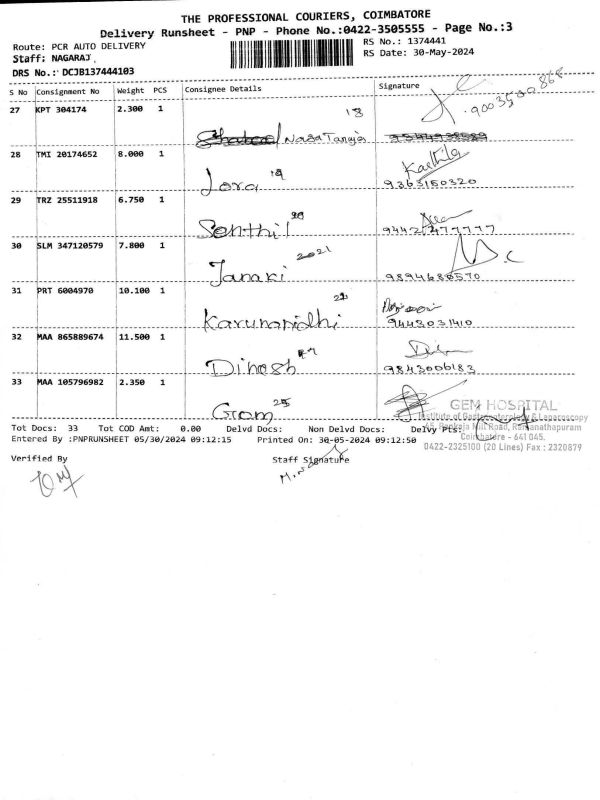 THE PROFESSIONAL COURIERS, COIMBATORE
Delivery Runsheet - PNP - Phone No.:0422-3505555 - Page No.:3
Route: PCR AUTO DELIVERY RS No.: 1374441
Staff: NAGARAJ. RS Date: 30-May-2024
DRS No.: DCJB137444103
S No Consignment No Weight PCS Consignee Details Signature
27 KPT 304174 2.300 1 18 9003500868
NagaTanya
28 TMI 20174652 8.000 1 Karthika
Lora 19 9363150320
29 TRZ 25511918 6.750 1
Senthil 20 9442477777
30 SLM 347120579 7.800 1 2021
Janaki 9894686570
31 PRT 6004970 10.100 1 22
Karunanidhi 9443031410
32 MAA 865889674 11.500 1
Dinesh 9843006183
33 MAA 105796982 2.350 1
Gem 25
GEM HOSPITAL
Institute of Gastroenterology & Laparoscopy
Tot Docs: 33 Tot COD Amt: 0.00 Delvd Docs: Non Delvd Docs: Delvy Pts:
45, Pankaja Mill Road, Ramanathapuram
Entered By :PNPRUNSHEET 05/30/2024 09:12:15 Printed On: 30-05-2024 09:12:50
Coimbatore - 641 045.
0422-2325100 (20 Lines) Fax : 2320879
Verified By Staff Signature